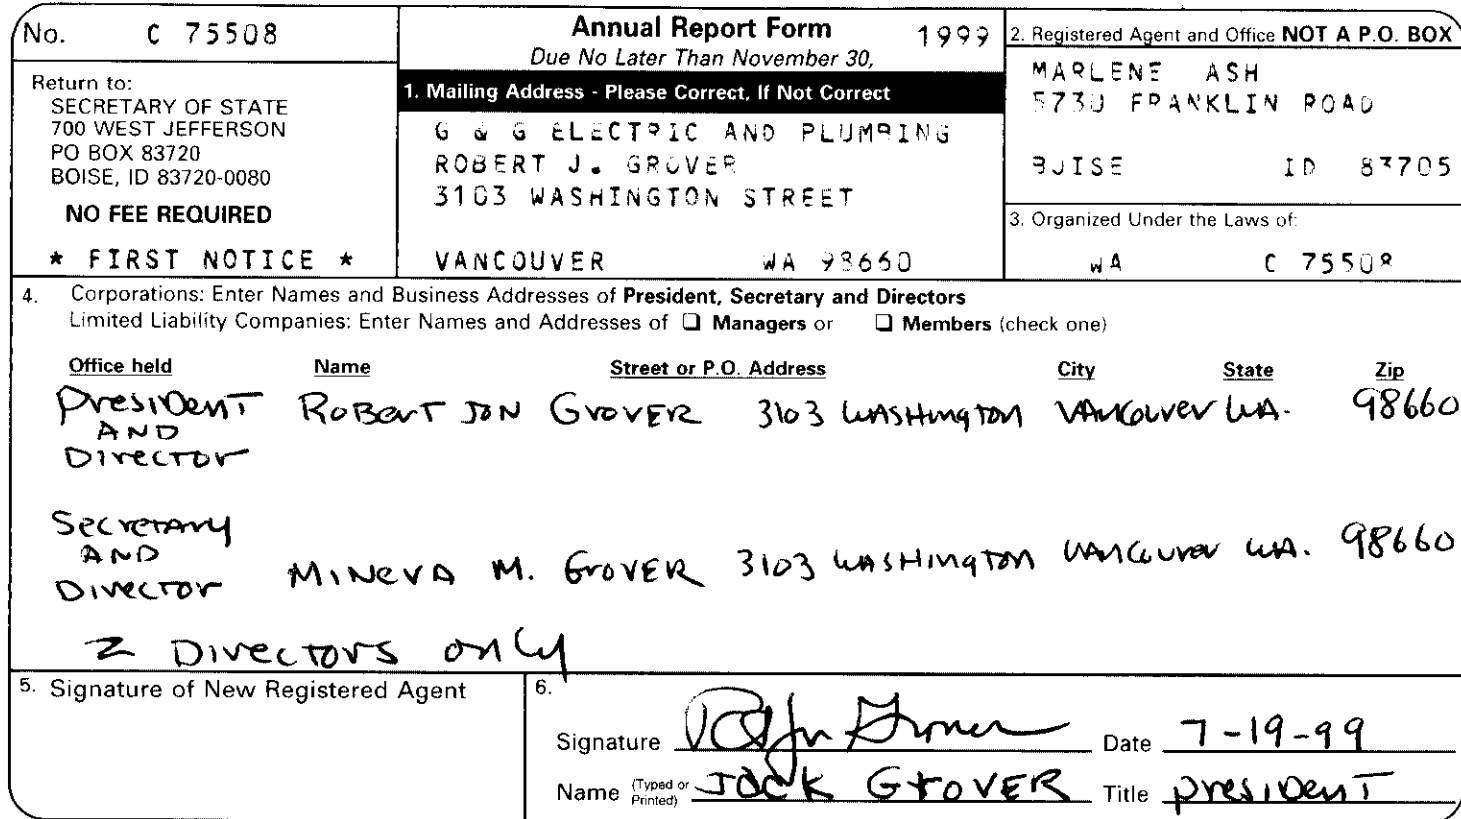 No. C 75508
Return to:
SECRETARY OF STATE
700 WEST JEFFERSON
PO BOX 83720
BOISE, ID 83720-0080
NO FEE REQUIRED
* FIRST NOTICE *
Annual Report Form 1999
Due No Later Than November 30,
1. Mailing Address - Please Correct, If Not Correct
G & G ELECTRIC AND PLUMBING
ROBERT J. GROVER
3103 WASHINGTON STREET
VANCOUVER WA 98660
2. Registered Agent and Office NOT A P.O. BOX
MARLENE ASH
5730 FRANKLIN ROAD
BOISE ID 83705
3. Organized Under the Laws of:
WA C 75508
4. Corporations: Enter Names and Business Addresses of President, Secretary and Directors
Limited Liability Companies: Enter Names and Addresses of ❑ Managers or ❑ Members (check one)
Office held Name Street or P.O. Address City State Zip
President Robert Jon Grover 3103 Washington Vancouver WA. 98660
AND
Director
Secretary
AND
Director Mineva M. Grover 3103 Washington Vancouver WA. 98660
2 Directors only
5. Signature of New Registered Agent
6.
Signature Date 7-19-99
Name (Typed or Printed) Jack Grover Title President